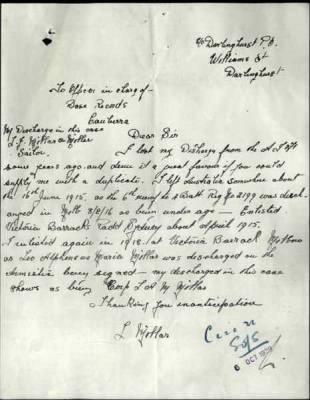 c/o Darlinghurst P.O.
Williams St
Darlinghurst
To Officer in charge of
Base Records
Canberra
My Discharge in this case
L. J. Mottar
Sailor.
Dear Sir
I lost my Discharge from the A.I.F.
some years ago and deem it a great favour if you would
supply me with a duplicate. I left Australia somewhere about
the 16th June 1915. as the 6th
Batt Reg No 2199 was disch-
anged in Melb 3/8/16 as being under age — Enlisted
Victoria Barracks Padd Sydney about April 1915.
I enlisted again in 1918. at Victoria Barrack
as Leo Alphensus Maria Mottar was discharged on the
Armistice being signed — my discharged in this case
shows as being Corp L A M Mottar
Thanking you in anticipation
L Mottar
OCT 19